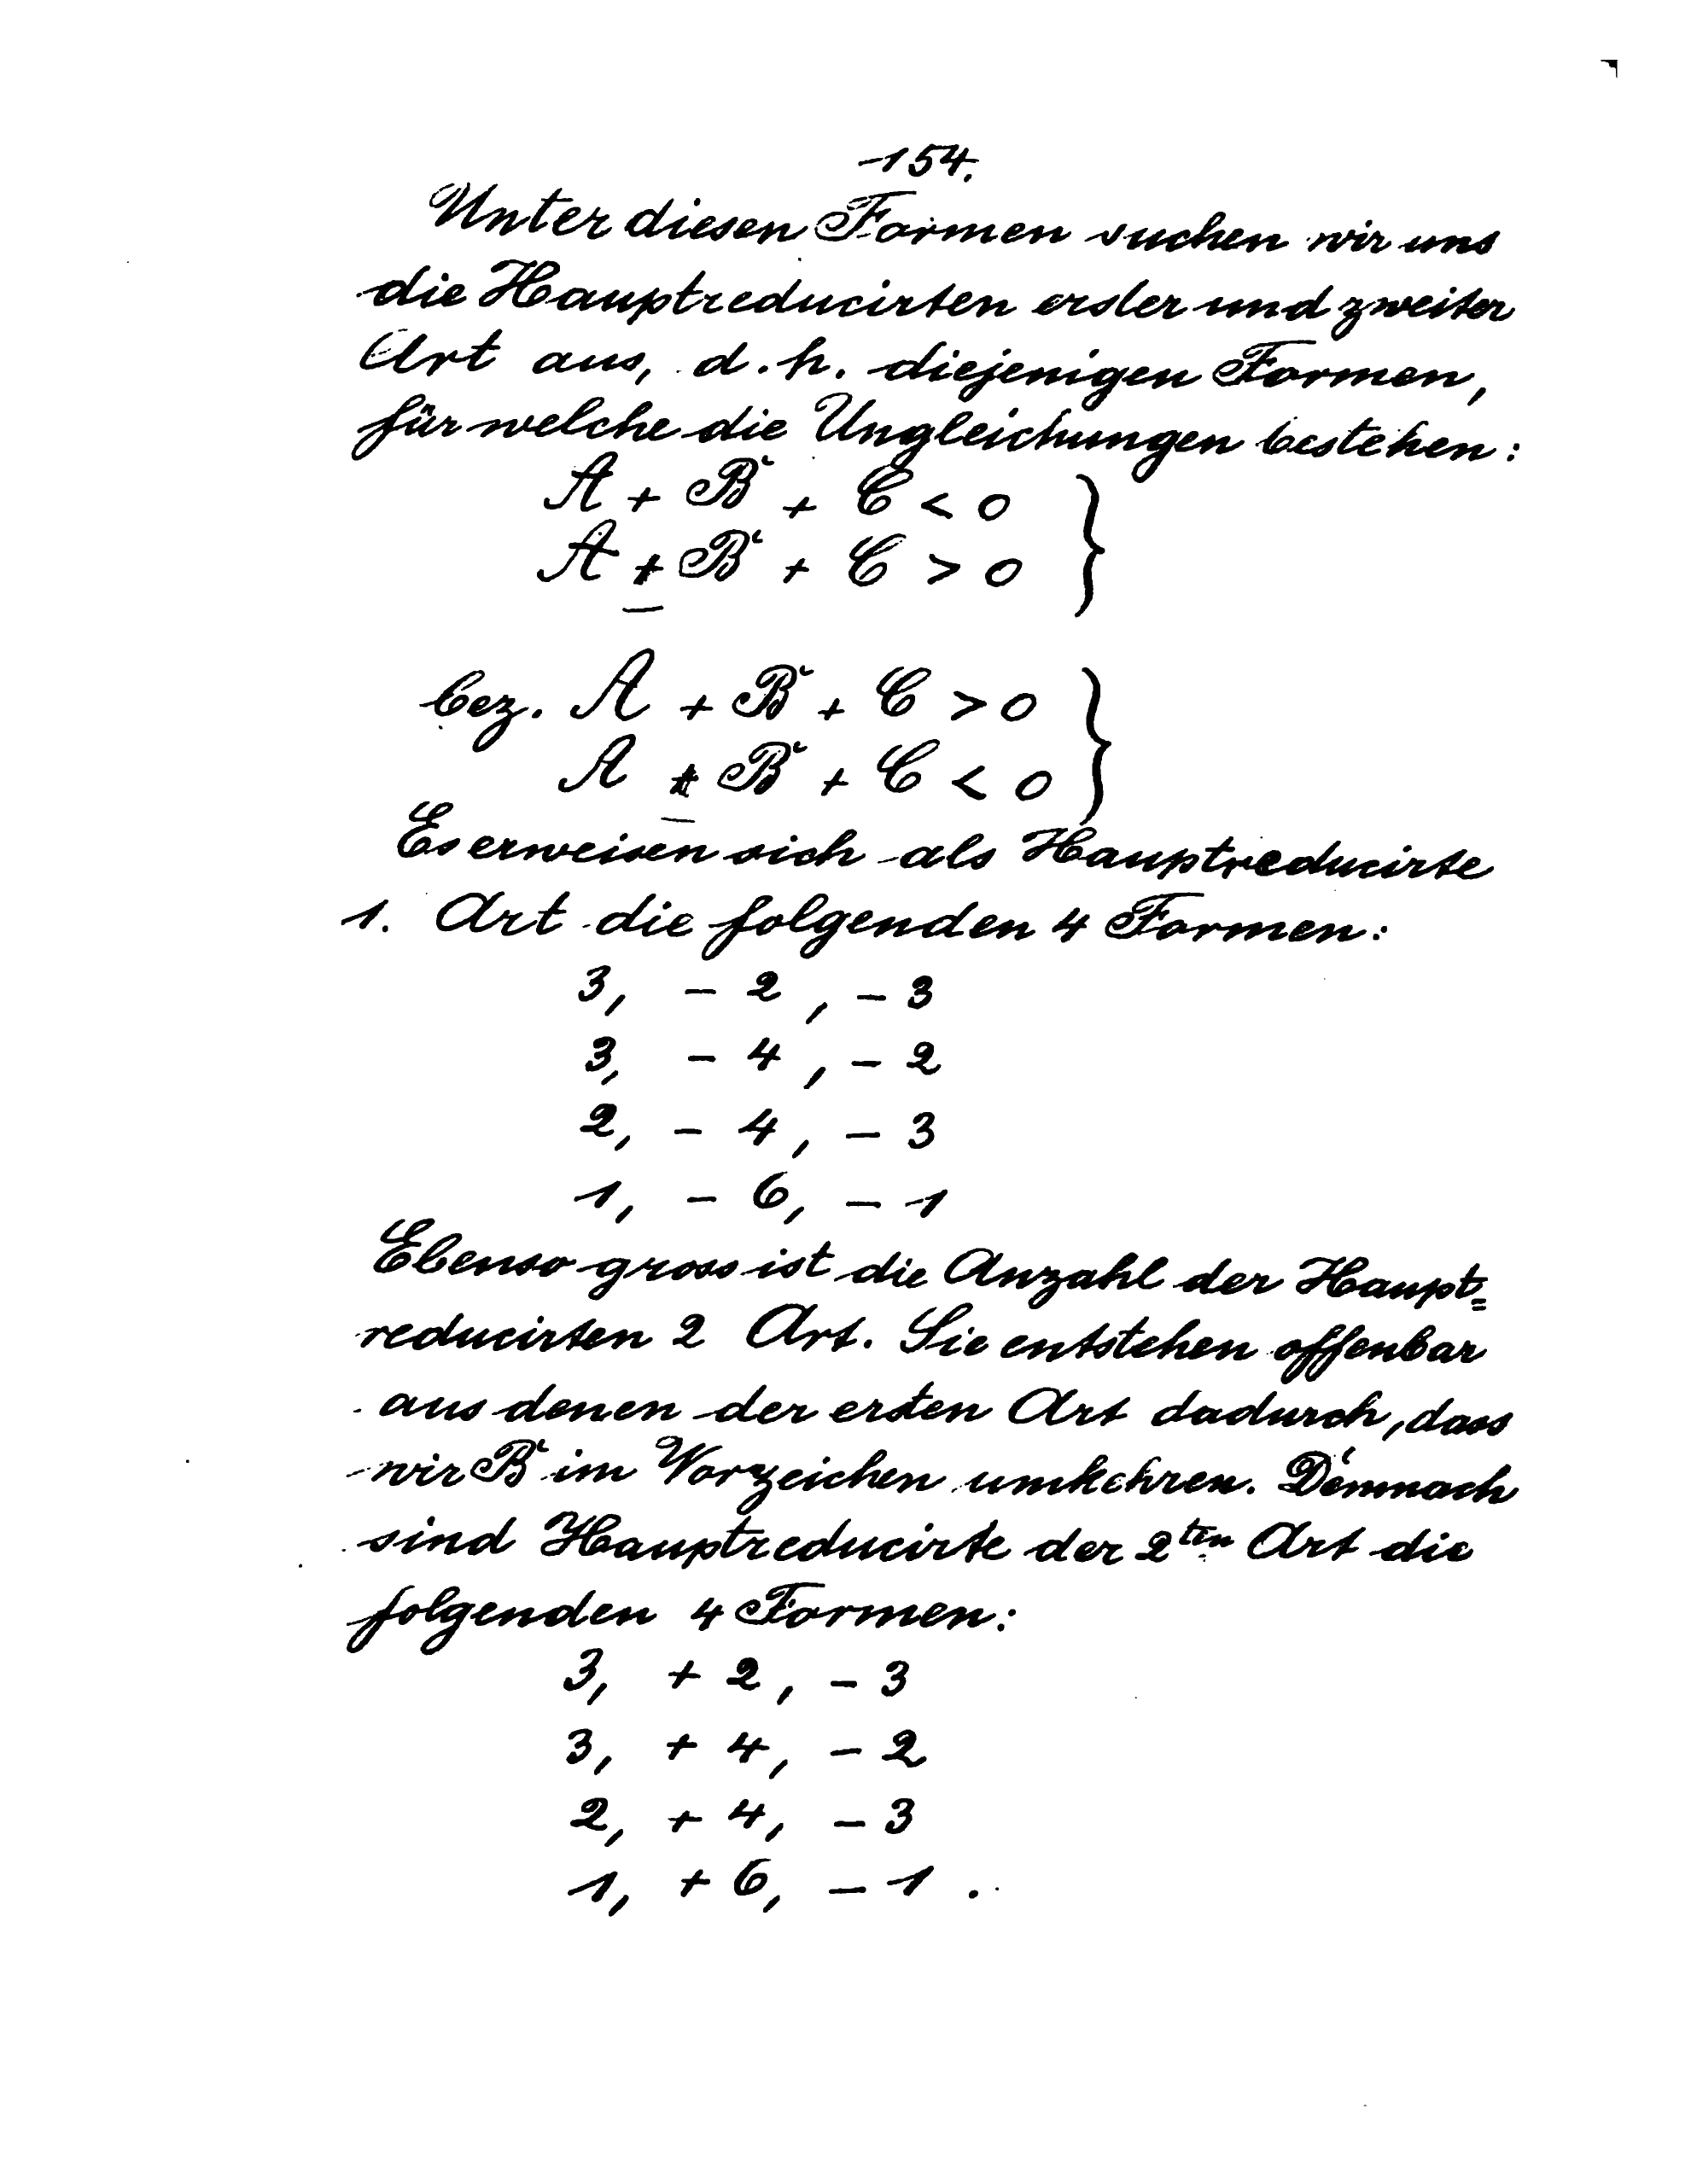 154.
Unter diesen Formen suchen wir uns
die Hauptreducirten erster und zweiter
Art aus, d.h. diejenigen Formen,
für welche die Ungleichungen bestehen:
A + B + C < 0 }
A - B + C > 0
bez. A + B + C > 0 }
A - B + C < 0
Es erweisen sich als Hauptreducirte
1. Art die folgenden 4 Formen:
3, - 2, - 3
3, - 4, - 2
2, - 4, - 3
1, - 6, - 1
Ebenso gross ist die Anzahl der Haupt=
reducirten 2 Art. Sie entstehen offenbar
aus denen der ersten Art dadurch, dass
wir B im Vorzeichen umkehren. Demnach
sind Hauptreducirte der 2ten Art die
folgenden 4 Formen:
3, + 2, - 3
3, + 4, - 2
2, + 4, - 3
1, + 6, - 1.